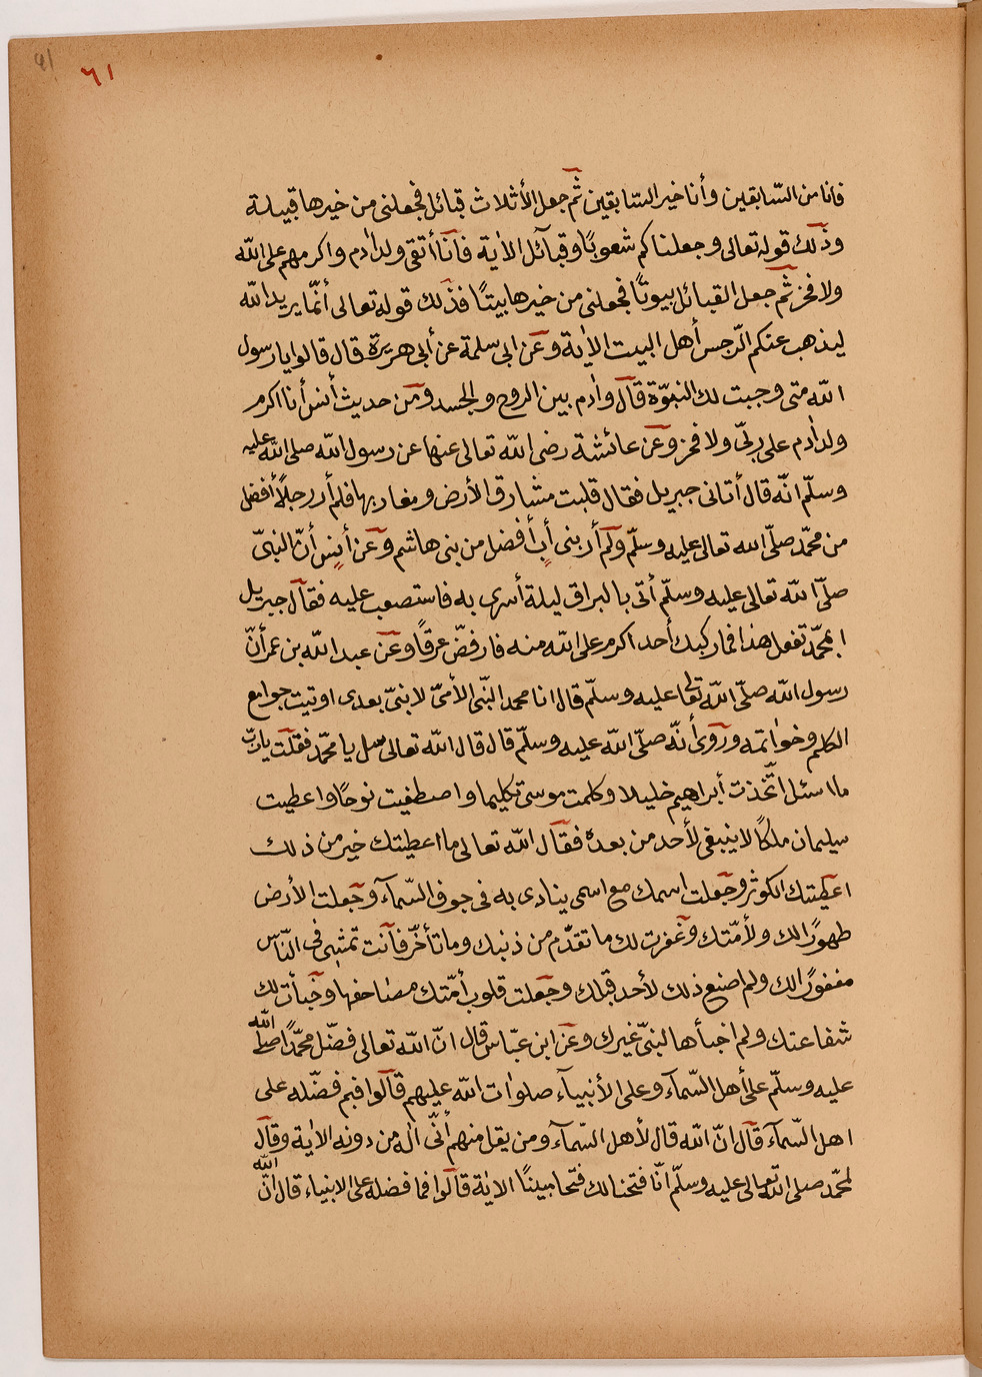 ٦١
فانا من السّابقين وأنا خير السّابقين ثمّ جعل الأثلاث قبائل فجعلنى من خيرها قبيلة
وذلك قوله تعالى وجعلناكم شعوبًا وقبآئل الاٰية فانا أتقى ولد اٰدم واكرمهم على اللّه
ولا فخر ثمّ جعل القبائل بيوتًا فجعلنى من خيرها بيتًا فذلك قوله تعالى أنّما يريد اللّه
ليذهب عنكم الرّجس أهل البيت الاٰية وعن ابى سلمة عن أبى هريرة قال قالوا يا رسول
اللّه متى وجبت لك النبوّة قال واٰدم بين الروح والجسد ومن حديث أنس أنا اكرم
ولد اٰدم على ربّى ولا فخر وعن عائشة رضى اللّه تعالى عنها عن رسول اللّه صلى اللّه عليه
وسلّم انّه قال أتانى جبريل فقال قلبت مشارق الأرض ومغاربها فلم أر رجلًا أفضل
من محمّد صلّى اللّه تعالى عليه وسلّم ولم أر بنى أبٍ أفضل من بنى هاشم وعن أنس أنّ النبىّ
صلّى اللّه تعالى عليه وسلّم أتى بالبراق ليلة أسرى به فاستصعب عليه فقال جبريل
ابمحمّد تفعل هذا فما ركبك أحد اكرم على اللّه منه فارفضّ عرقًا وعن عبد اللّه بن عمر أنّ
رسول اللّه صلّى اللّه تعالى عليه وسلّم قال انا محمد النّبى الأمىّ لا نبىّ بعدى اوتيت جوامع
الكلم وخواٰتمه وروى أنّه صلّى اللّه عليه وسلّم قال قال اللّه تعالى سل يا محمّد فقلت يا ربّ
ما اسئل اتّخذت أبراهيم خليلا وكلمت موسى تكليما واصطفيت نوحًا واعطيت
سيلمان ملكًا لا ينبغى لأحد من بعده فقال اللّه تعالى ما اعطيتك خير من ذلك
اعطيتك الكوثر وجعلت اسمك مع اسمى ينادى به فى جوف السّمآء وجعلت الأرض
طهورًا لك ولأمّتك وغفرت لك ما تقدّم من ذنبك وما تأخّر فأنت تمشى فى النّاس
مغفورًا لك ولم اصنع ذلك لأحد قبلك وجعلت قلوب أمّتك مصاحفها وخبأت لك
شفاعتك ولم اخبأها لنبىّ غيرك وعن ابن عبّاس قال انّ اللّه تعالى فضّل محمّدًا صلى اللّه
عليه وسلّم على أهل السّمآء وعلى الأنبيآء صلواٰت اللّه عليهم قالوا فبم فضّله على
اهل السّمآء قال انّ اللّه قال لأهل السّمآء ومن يقل منهم أنّى اله من دونه الاٰية وقال
لمحمّد صلى اللّه تعالى عليه وسلّم انّا فتحنا لك فتحا مبينًا الاٰية قالوا فما فضله على الانبياء قال انّ اللّه